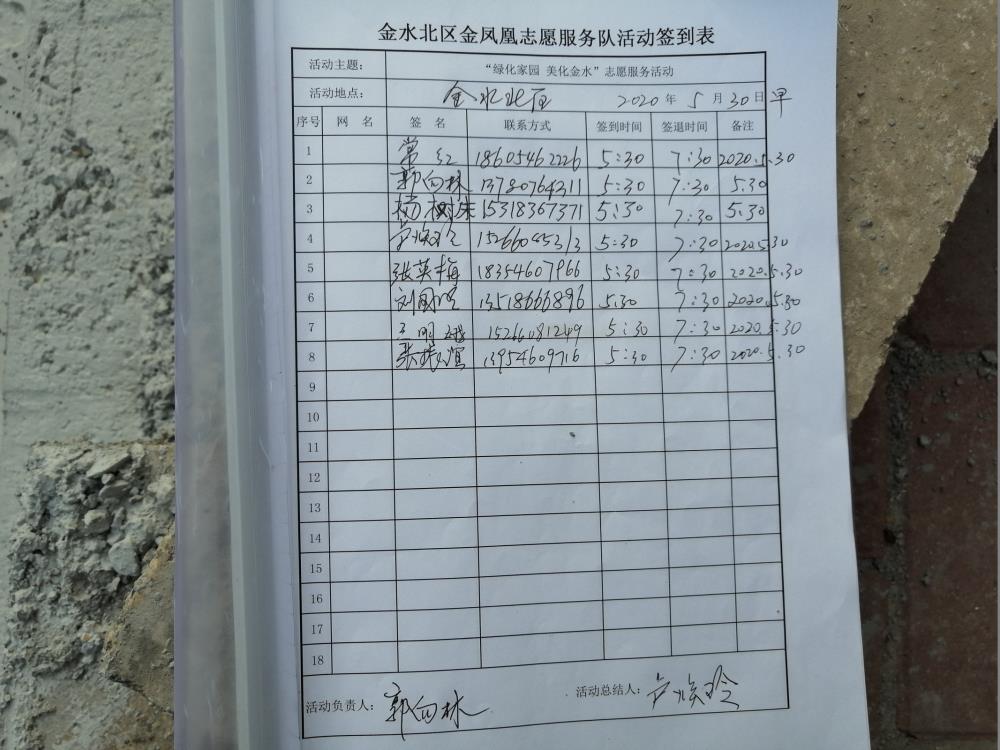 金水北区金凤凰志愿服务队活动签到表
活动主题： “绿化家园 美化金水”志愿服务活动
活动地点： 金水北区 2020 年 5 月 30 日 早
序号 网 名 签 名 联系方式 签到时间 签退时间 备注
1 常红 18605462226 5:30 7:30 2020.5.30
2 郭向林 13780764311 5:30 7:30 5.30
3 杨树珠 15318367371 5:30 7:30 5.30
4 卢焕玲 15266045313 5:30 7:30 2020.5.30
5 张英梅 18354607966 5:30 7:30 2020.5.30
6 刘国 13518666896 5:30 7:30 2020.5.30
7 王明 15266081249 5:30 7:30 2020.5.30
8 张振 13954609716 5:30 7:30 2020.5.30
9
10
11
12
13
14
15
16
17
18
活动负责人： 郭向林 活动总结人： 卢焕玲